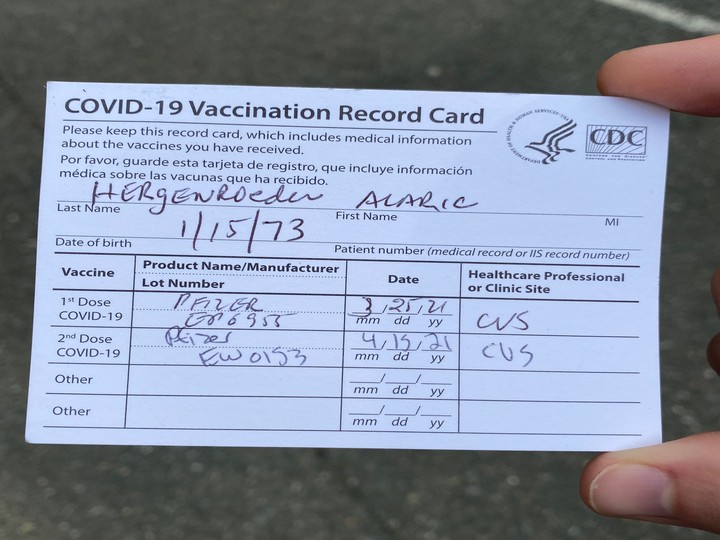 COVID-19 Vaccination Record Card
Please keep this record card, which includes medical information
about the vaccines you have received.
Por favor, guarde esta tarjeta de registro, que incluye información
médica sobre las vacunas que ha recibido.
DEPARTMENT OF HEALTH & HUMAN SERVICES • USA
CDC
CENTERS FOR DISEASE
CONTROL AND PREVENTION
HERGENROeder ALARIC
Last Name First Name MI
1/15/73
Date of birth Patient number (medical record or IIS record number)
Vaccine Product Name/Manufacturer Date Healthcare Professional
Lot Number or Clinic Site
1st Dose PFIZER 3/25/21 CVS
COVID-19 mm dd yy
2nd Dose Pfizer 4/15/21 CVS
COVID-19 EW0153 mm dd yy
Other ___/___/___
mm dd yy
Other ___/___/___
mm dd yy